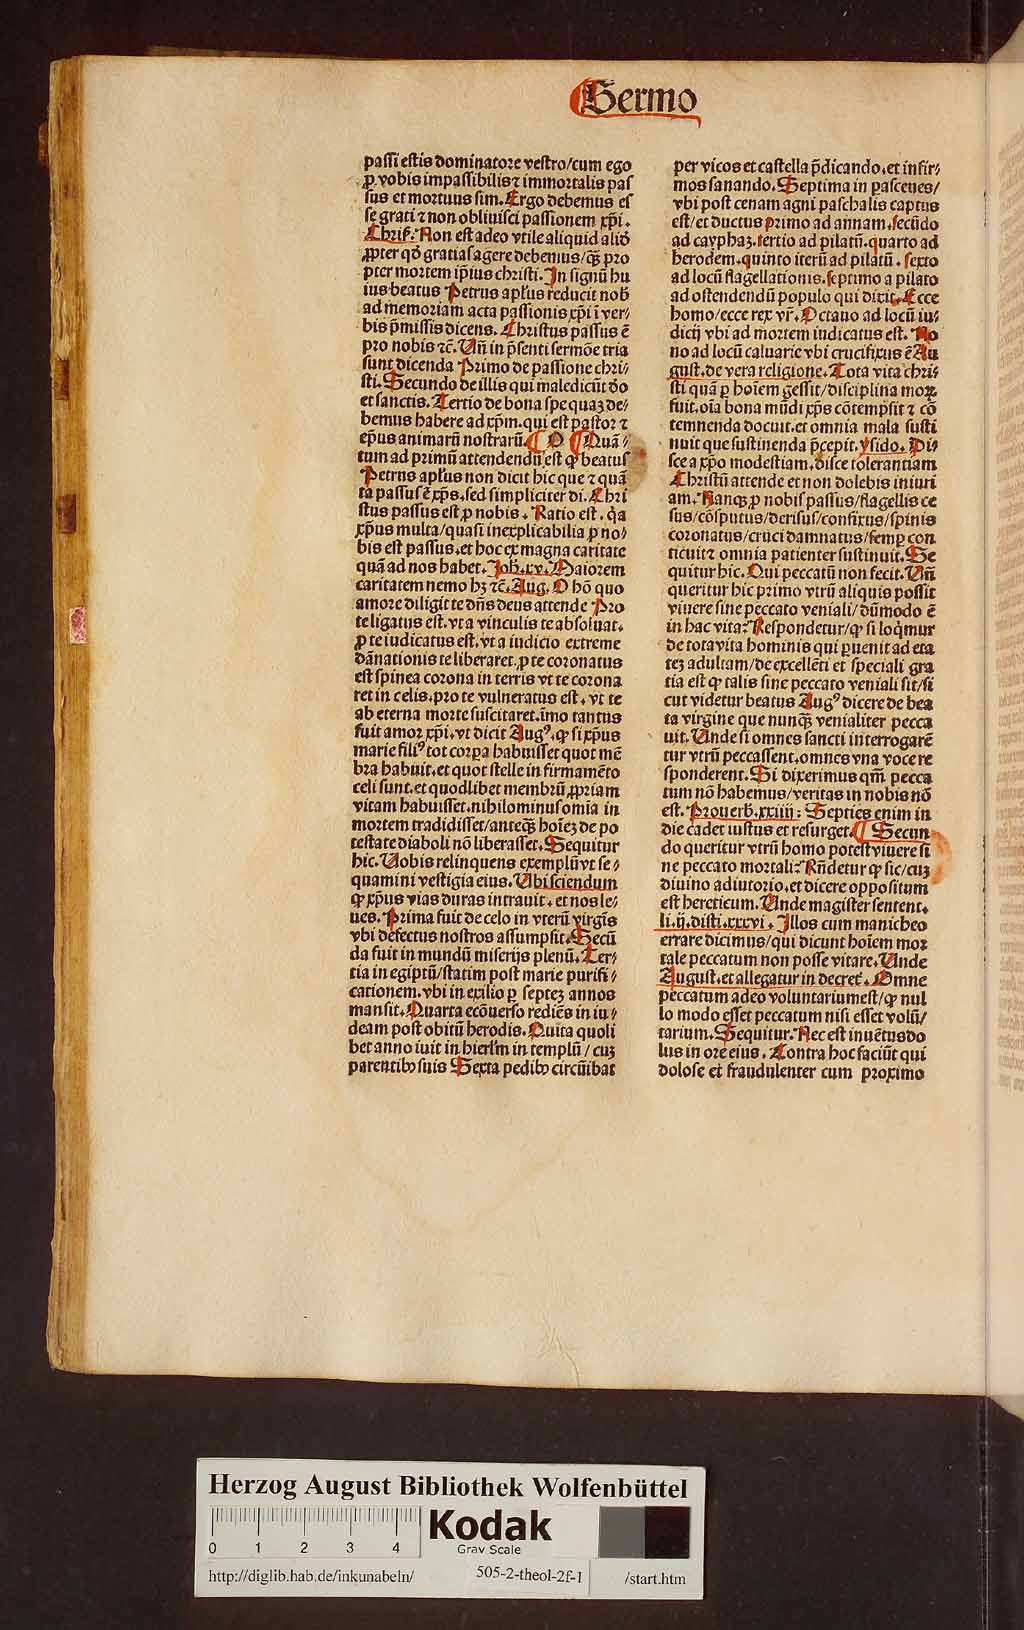 Sermo
passi estis dominatore vestro/cum ego
ꝓ vobis impassibilis ⁊ immortalis pas
sus et mortuus sim. Ergo debemus es
se grati ⁊ non oblivisci passionem xp̄i.
Chris. Non est adeo vtile aliquid aliō
ꝓpter qd̄ gratias agere debemus/q̄ꝫ pro
pter mortem ip̄ius christi. In signū hu
ius beatus Petrus apl̄us reducit nob̄
ad memoriam acta passionis xp̄i ī ver⸗
bis p̄missis dicens. Christus passus ē
pro nobis ⁊c̄. Un̄ in p̄senti sermōe tria
sunt dicenda Primo de passione chri⸗
sti. Secundo de illis qui maledicūt do
et sanctis. Tertio de bona spe quaꝫ de⸗
bemus habere ad xp̄m. qui est pastor ⁊
ep̄us animarū nostrarū. ¶ O ¶ Quā⸗
tum ad primū attendendū est ꝙ beatus
Petrus apl̄us non dicit hic que ⁊ quā
ta passus ē xp̄s. sed simpliciter di. Chri
stus passus est ꝓ nobis. Ratio est. q̄a
xp̄us multa/quasi inexplicabilia ꝓ no⸗
bis est passus. et hoc ex magna caritate
quā ad nos habet. Joh̄. xv. Maiorem
caritatem nemo hꝫ ⁊c̄. Aug. O hō quo
amore diligit te dn̄s deus attende Pro
te ligatus est. vt a vinculis te absoluat.
ꝓ te iudicatus est. vt a iudicio extreme
dānationis te liberaret. ꝓ te coronatus
est spinea corona in terris vt te corona
ret in celis. pro te vulneratus est. vt te
ab eterna morte suscitaret. īmo tantus
fuit amor xp̄i. vt dicit Augꝰ. ꝙ si xp̄us
marie filiꝰ tot corꝑa habuisset quot mē
bra habuit. et quot stelle in firmamēto
celi sunt. et quodlibet membrū ꝓpriam
vitam habuisset. nihilominus om̄ia in
mortem tradidisset/anteq̄ꝫ hoīeꝫ de po
testate diaboli nō liberasset. Sequitur
hic. Vobis relinquens exemplū vt se⸗
quamini vestigia eius. Ubi sciendum
ꝙ xp̄us vias duras intrauit. et nos le⸗
ues. Prima fuit de celo in vterū virgīs
vbi defectus nostros assumpsit. Secū
da fuit in mundū miserijs plenū. Ter⸗
tia in egiptū/statim post marie purifi⸗
cationem. vbi in exilio ꝑ septeꝫ annos
mansit. Quarta ecōuerso rediēs in iu⸗
deam post obitū herodis. Quita quoli
bet anno iuit in hierl̄m in templū/cuꝫ
parentibꝰ suis Sexta pedibꝰ circūibat
per vicos et castella p̄dicando. et infir⸗
mos sanando. Septima in ꝑasceues/
vbi post cenam agni paschalis captus
est/et ductus primo ad annam. secūdo
ad cayphaꝫ. tertio ad pilatū. quarto ad
herodem. quinto iterū ad pilatū. sexto
ad locū flagellationis. septimo a pilato
ad ostendendū populo qui dixit. Ecce
homo/ecce rex vr̄. Octauo ad locū iu⸗
dicij vbi ad mortem iudicatus est. No
no ad locū caluarie vbi crucifixus ē Au
gust. de vera religione. Tota vita chri⸗
sti quā ꝑ hoīem gessit/disciplina moꝝ
fuit. oīa bona mūdi xp̄s cōtempsit ⁊ cō
temnenda docuit. et omnia mala susti
nuit que sustinenda p̄cepit. ysido. Di⸗
sce a xp̄o modestiam. disce tolerantiam
Christū attende et non dolebis iniuri
am. Nanqꝫ ꝓ nobis passus/flagellis ce
sus/cōsputus/derisus/confixus/spinis
coronatus/cruci damnatus/semꝑ con
ticuit ⁊ omnia patienter sustinuit. Se
quitur hic. Qui peccatū non fecit. Un̄
queritur hic primo vtrū aliquis possit
viuere sine peccato veniali/dūmodo ē
in hac vita? Respondetur/ꝙ si loq̄mur
de tota vita hominis qui ꝑuenit ad eta
teꝫ adultam/de excellēti et speciali gra
tia est ꝙ talis sine peccato veniali sit/si
cut videtur beatus Augꝰ dicere de bea
ta virgine que nunq̄ꝫ venialiter pecca
uit. Unde si omnes sancti interrogarē
tur vtrū peccassent. omnes vna voce re
sponderent. Si dixerimus qm̄ pecca
tum nō habemus/veritas in nobis nō
est. Prouerb. xxiiij: Septies enim in
die cadet iustus et resurget. ¶ Secun
do queritur vtrū homo potest viuere si
ne peccato mortali? Rn̄detur ꝙ sic/cuꝫ
diuino adiutorio. et dicere oppositum
est hereticum. Unde magister sentent.
li. ij. disti. xxxvi. Illos cum manicheo
errare dicimus/qui dicunt hoīem mor
tale peccatum non posse vitare. Unde
August. et allegatur in decret̄. Omne
peccatum adeo voluntarium est/ꝙ nul
lo modo esset peccatum nisi esset volū/
tarium. Sequitur. Nec est inuētus do
lus in ore eius. Contra hoc faciūt qui
dolose et fraudulenter cum proximo
Herzog August Bibliothek Wolfenbüttel
0 1 2 3 4
Kodak
Gray Scale
http://diglib.hab.de/inkunabeln/ 505-2-theol-2f-1 /start.htm